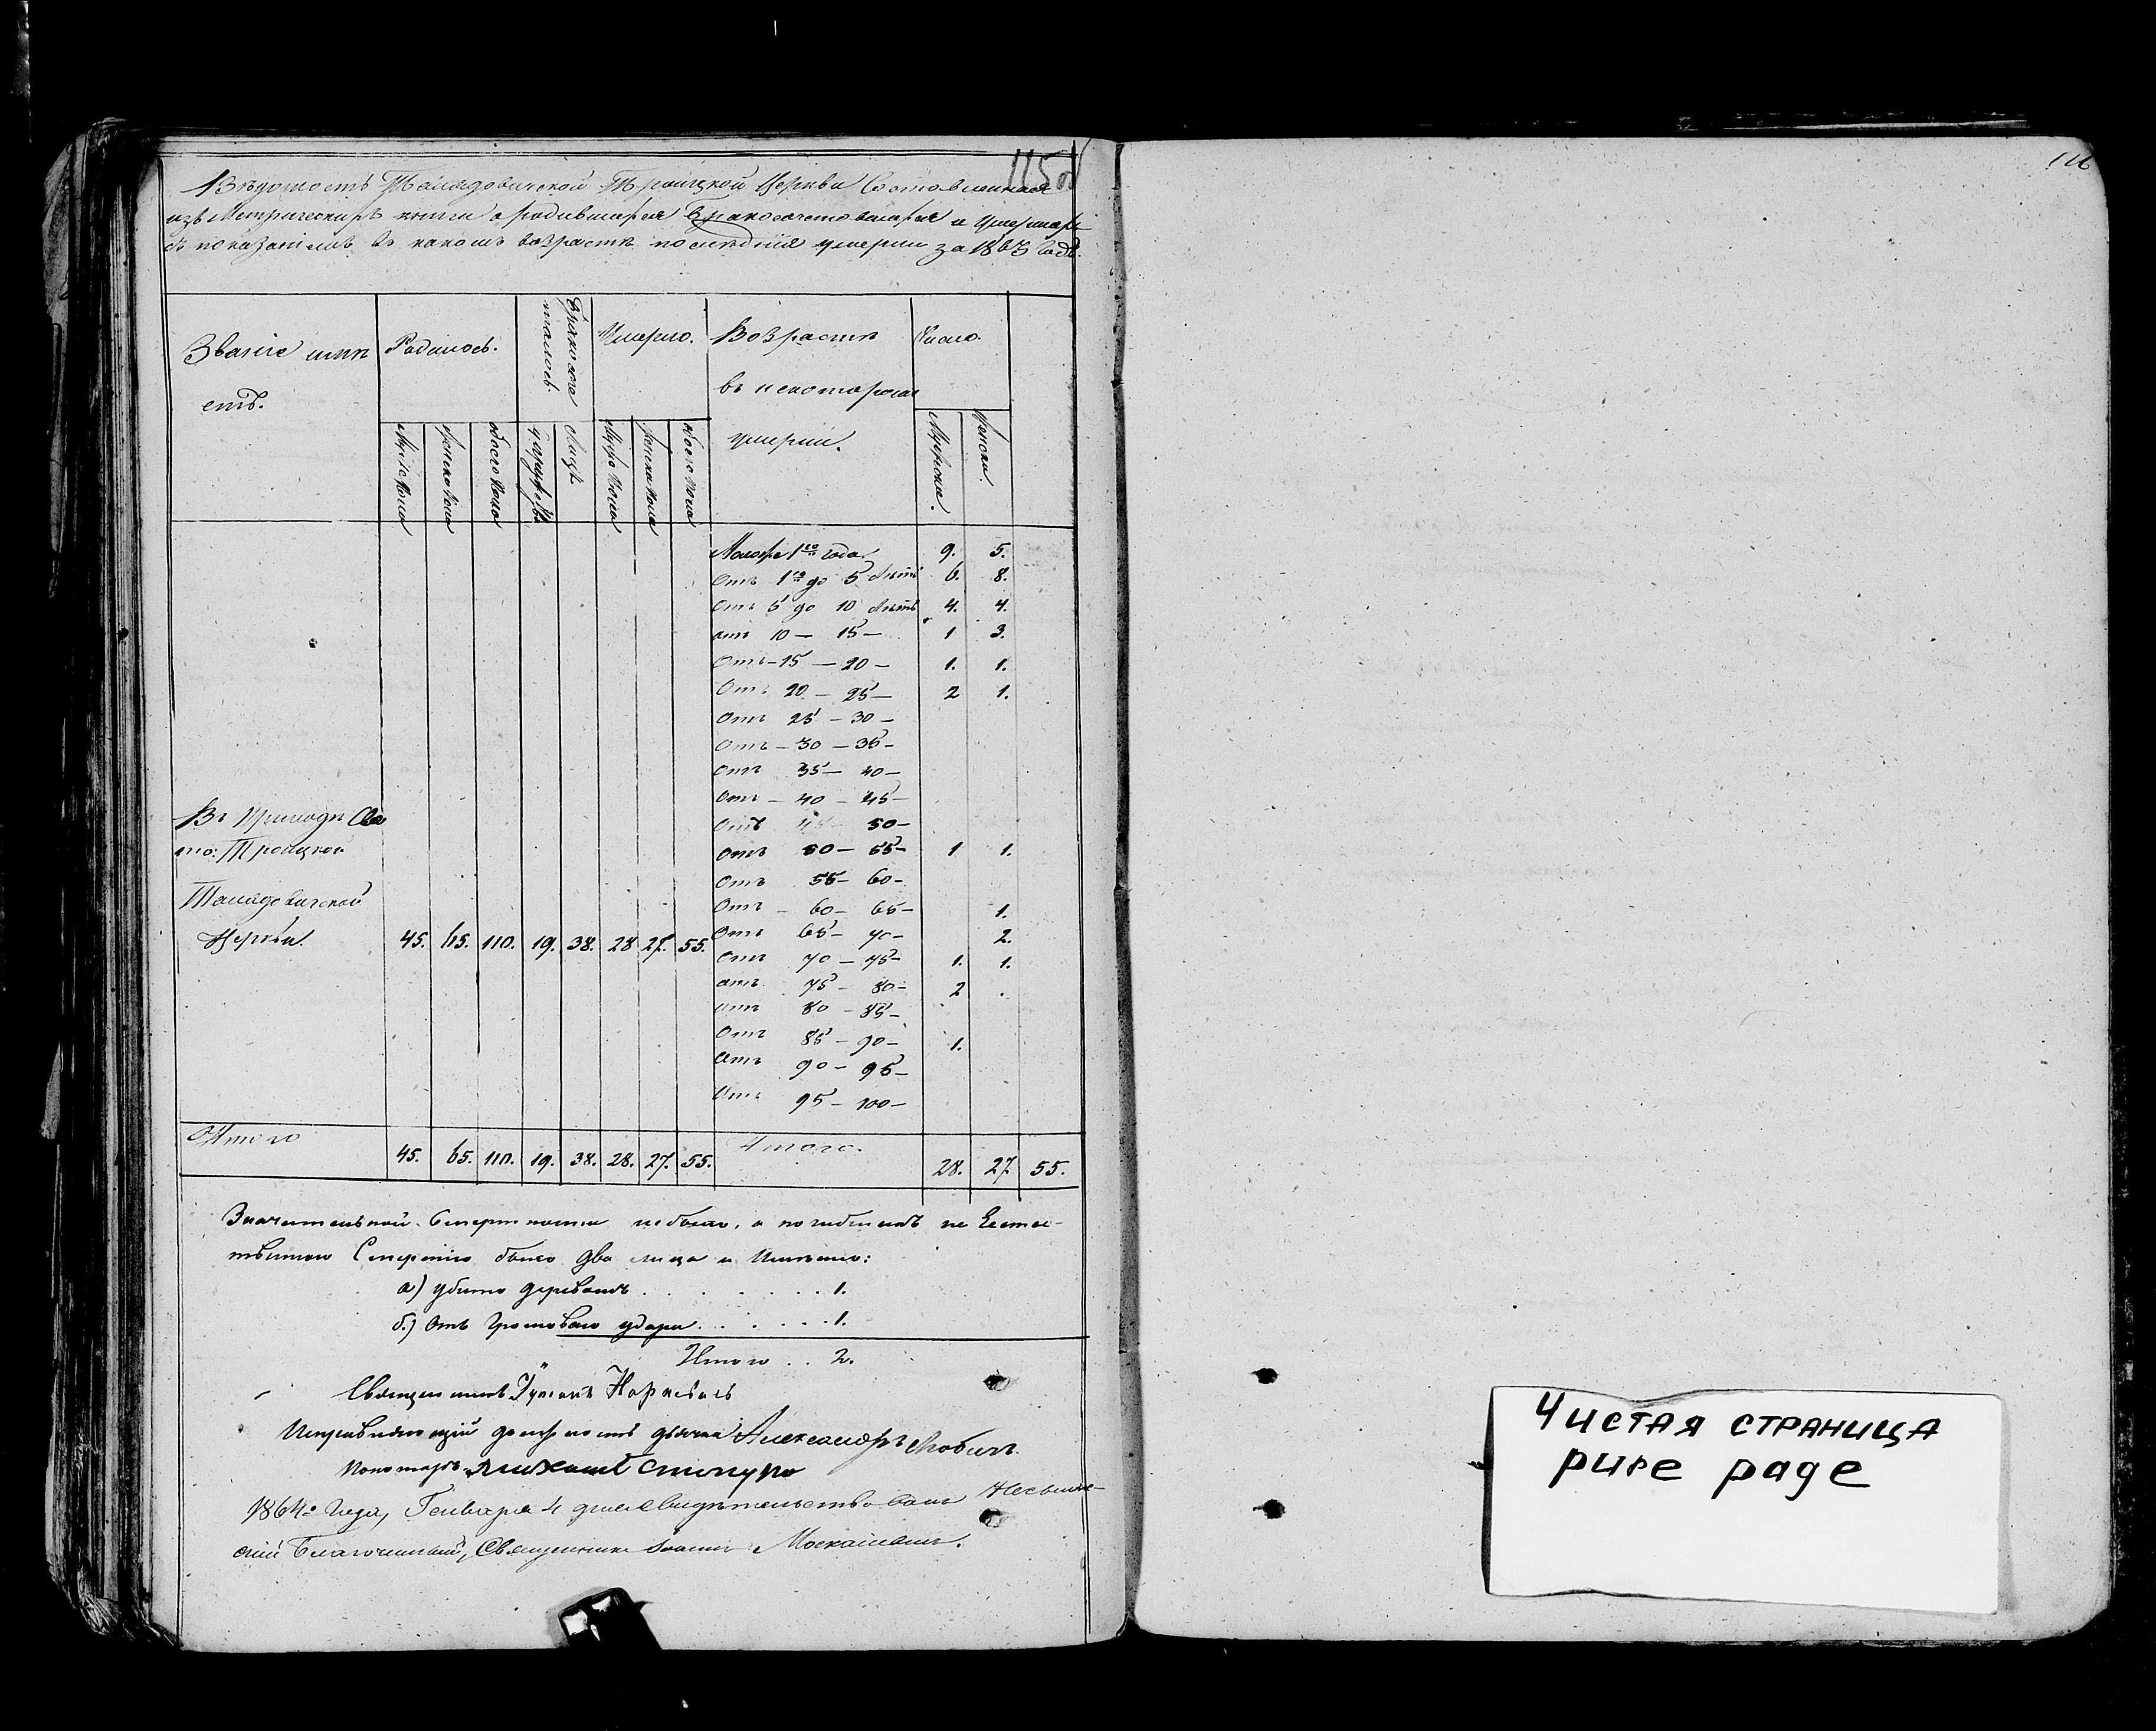 115 об
Вѣдомость Троицкой Церкви Составленная
изъ Метрической книги о родившихся Бракосочетавшихся и Умершихъ
съ показаніемъ въ какомъ возрастѣ послѣдніе умерли за 1863 Годъ.
Званіе мѣстъ.
Родилось. Бракосочеталось. Умерло. Возрастъ въ Число.
умерли.
Мужска пола Женска пола Обоего пола Супружествъ Лицъ Мужс пола Женска пола Обоего пола Мужска. Женска.
Моложе 1го года 9. 5.
Отъ 1го до 5 Лѣтъ 6. 8.
Отъ 5 до 10 Лѣтъ 4. 4.
отъ 10 — 15 — 1 3.
Отъ — 15 — 20 — 1. 1.
Отъ 20 — 25 — 2 1.
Отъ 25 — 30 —
Отъ — 30 — 35 —
Отъ 35 — 40 —
Отъ — 40 — 45 —
Отъ 45 — 50 —
Отъ 50 — 55 — 1 1.
Отъ 55 — 60 —
Отъ — 60 — 65 — 1.
Отъ 65 — 70 — 2.
Отъ 70 — 75 — 1. 1.
отъ 75 — 80 — 2 .
отъ 80 — 85 —
Отъ 85 — 90 — 1.
Отъ 90 — 95 —
Отъ 95 — 100 —
Въ Приходѣ Свято: Троицкой
Церкви. 45. 65. 110. 19. 38. 28 27. 55.
Итого 45. 65. 110. 19. 38. 28. 27. 55. Итого. 28. 27 55.
Значительной Смертности небыло, а погибшихъ не Естес-
твенною Смертію было два лица и Именно:
а) убито деревомъ . . . . . . . 1.
б.) Отъ Громоваго удара . . . . . 1.
Итого . . 2.
Священникъ
Исправляющій должность дьячка Александръ
Пономарь Михаилъ
1864го Года, Генваря 4 дня Свидѣтельствовалъ
скій Благочинный, Священникъ
116
Чистая страница
pure page